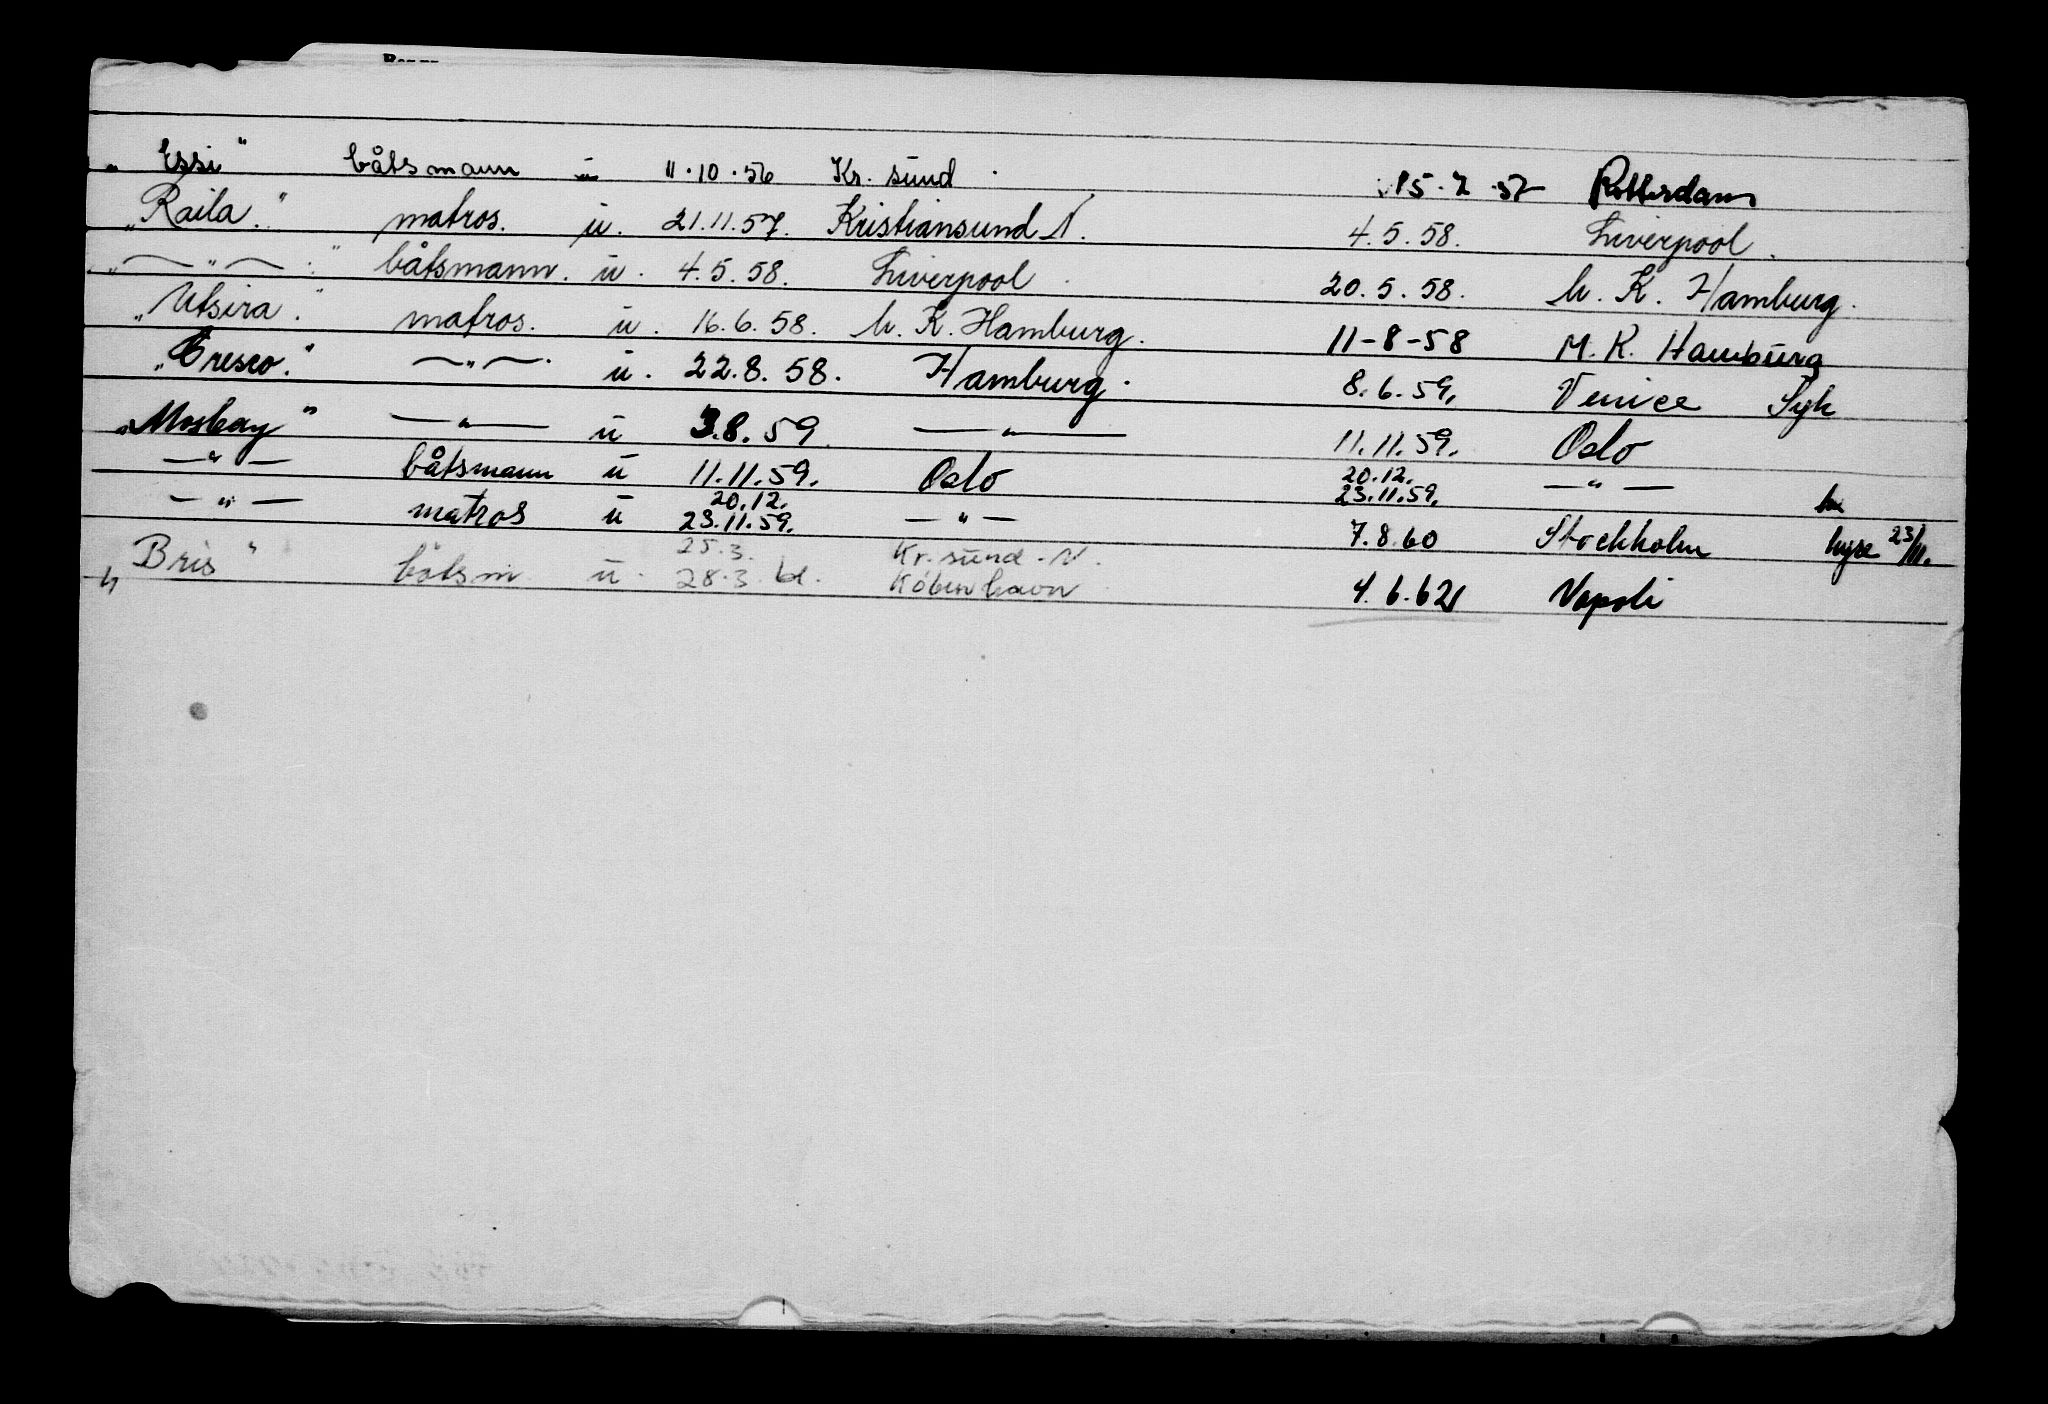 „ Essi " båtsmann u 11.10.56 Kr. sund. 15.7.57 Rotterdam
„Raila." matros. u. 21.11.57. Kristiansund N. 4.5.58. Liverpool.
„—"—" båtsmann. u. 4.5.58. Liverpool. 20.5.58. h. K. Hamburg.
„Utsira." matros. u. 16.6.58. h. K. Hamburg. 11-8-58 M. K. Hamburg
„Cresco." —"—. u. 22.8.58. Hamburg. 8.6.59. Venice Syk
„Mosbay" —"— u 3.8.59. —"— 11.11.59. Oslo
—"— båtsmann u 11.11.59. Oslo 20.12. 23.11.59. —"—
—"— matros u 20.12. 23.11.59. —"— 7.8.60 Stockholm hyre 23/11.
„ Bris " båtsm. u. 25.3. 28.3.61. Kr. sund. N. København 4.6.62 Napoli